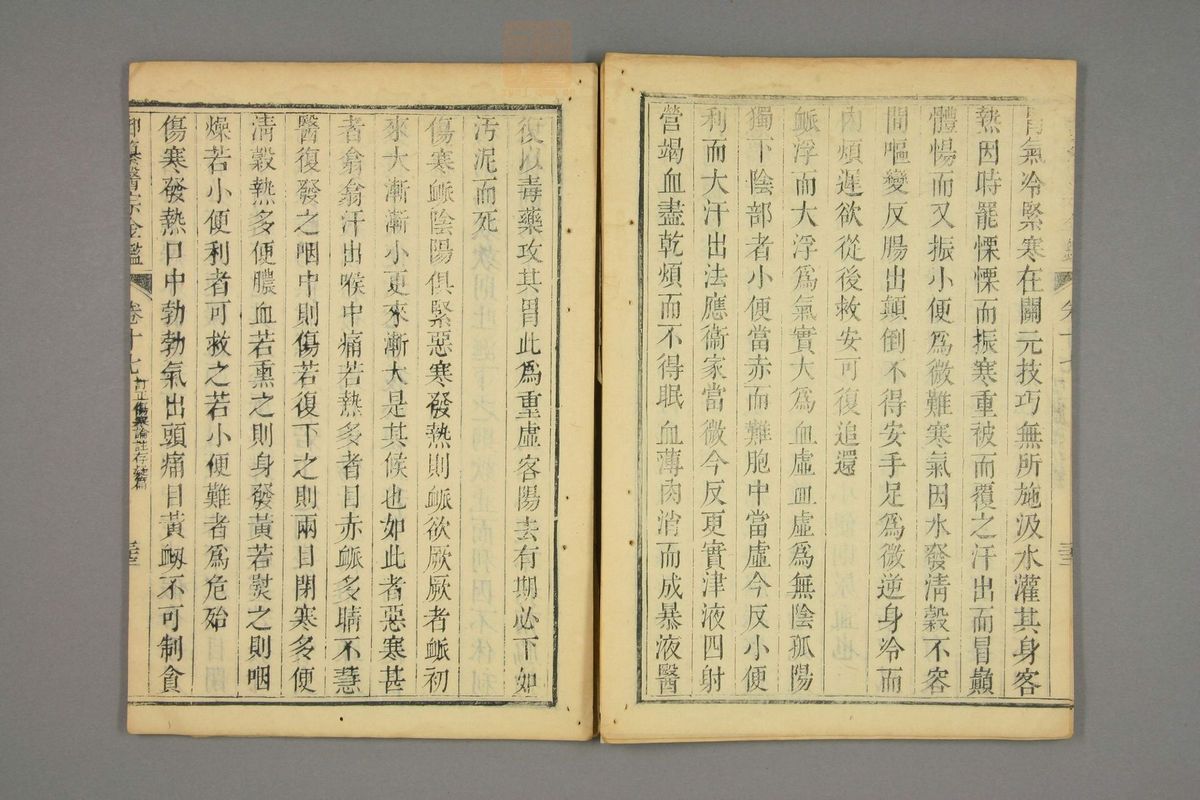 胃氣冷緊寒在關元技巧無所施汲水灌其身客
熱因時罷慄慄而振寒重被而覆之汗出而冒巔
體惕而又振小便爲微難寒氣因水發淸穀不容
間嘔變反腸出顛倒不得安手足爲微逆身冷而
內煩遲欲從後救安可復追還
脈浮而大浮爲氣實大爲血虛血虛爲無陰孤陽
獨下陰部者小便當赤而難胞中當虛今反小便
利而大汗出法應衞家當微今反更實津液四射
營竭血盡乾煩而不得眠血薄肉消而成暴液醫
復以毒藥攻其胃此爲重虛客陽去有期必下如
汚泥而死
傷寒脈陰陽俱緊惡寒發熱則脈欲厥厥者脈初
來大漸漸小更來漸大是其候也如此者惡寒甚
者翕翕汗出喉中痛若熱多者目赤脈多睛不慧
醫復發之咽中則傷若復下之則兩目閉寒多便
淸穀熱多便膿血若熏之則身發黃若熨之則咽
燥若小便利者可救之若小便難者爲危殆
傷寒發熱口中勃勃氣出頭痛目黃衂不可制貪
御纂醫宗金鑑 卷十七 訂正傷寒論註存疑篇